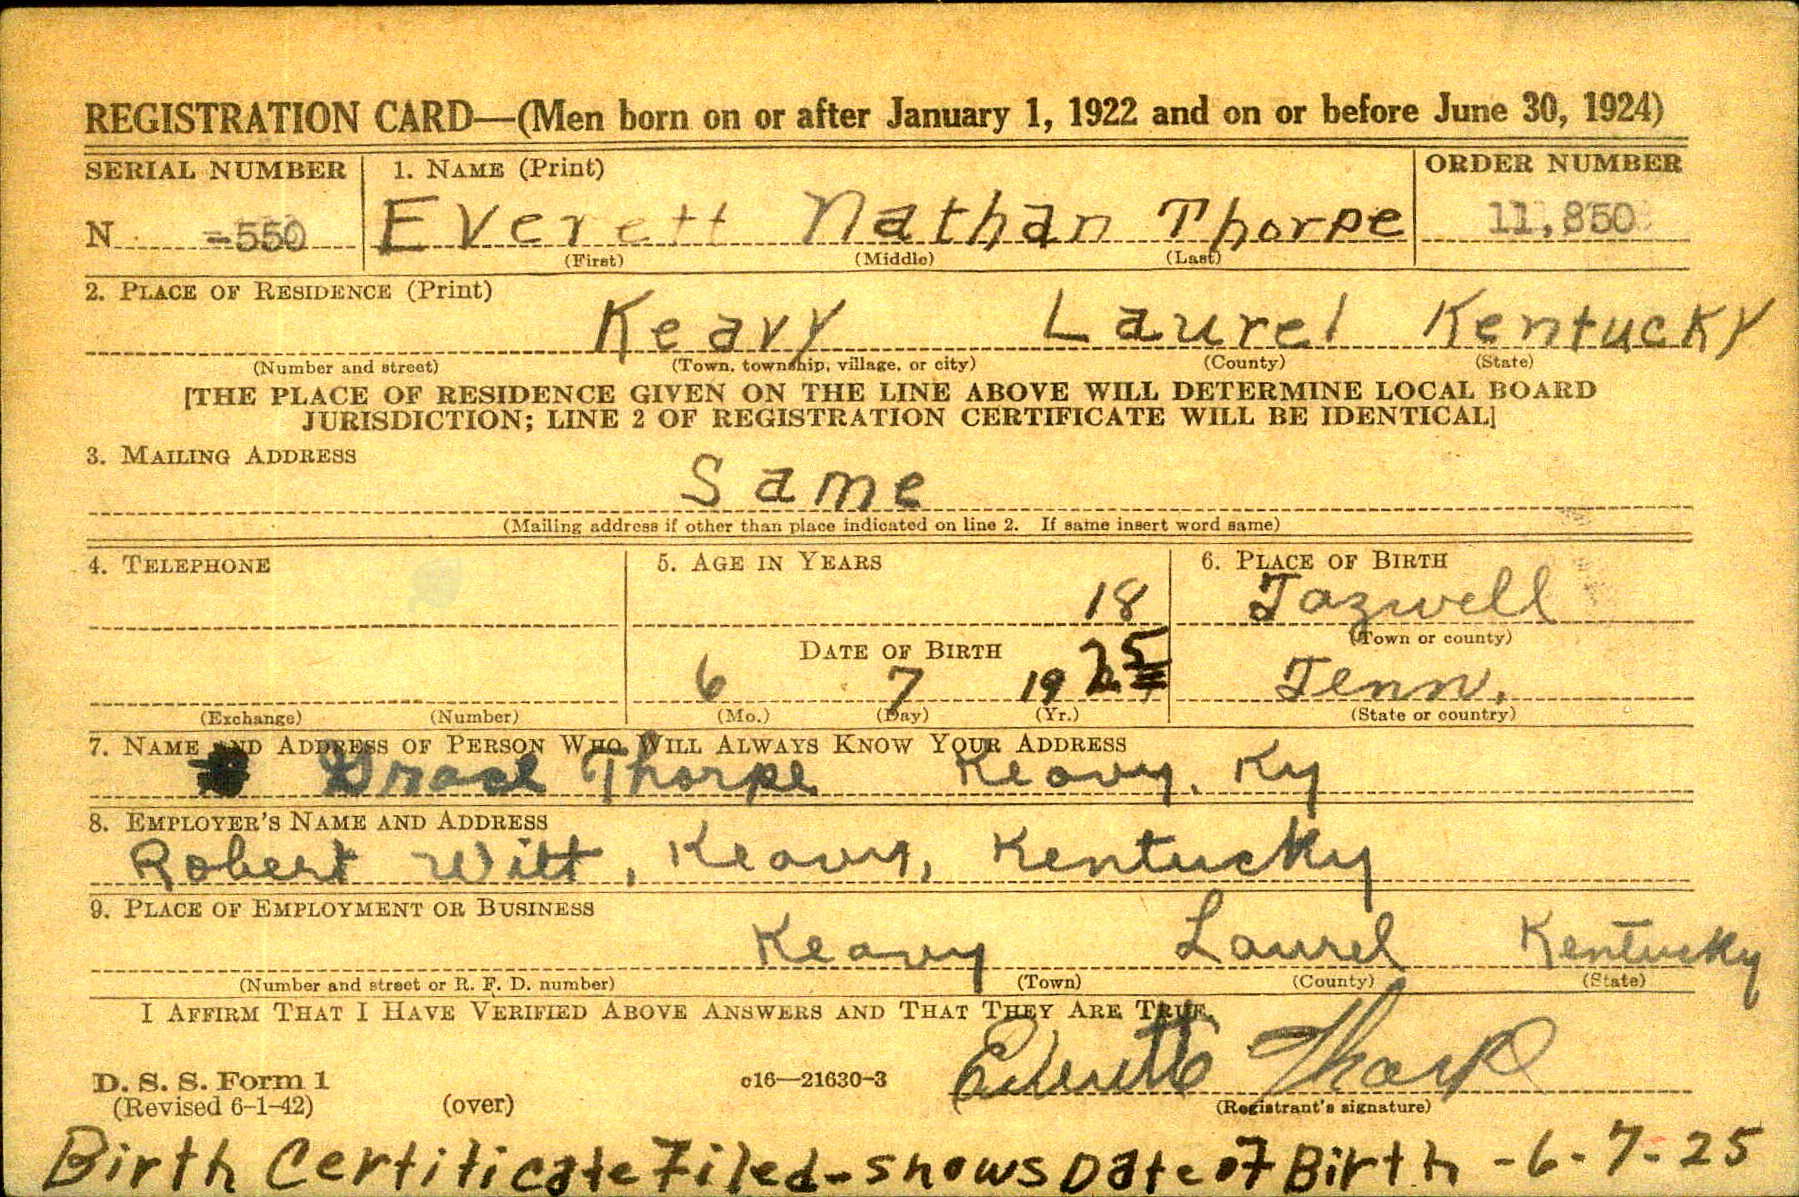 REGISTRATION CARD—(Men born on or after January 1, 1922 and on or before June 30, 1924)
SERIAL NUMBER 1. NAME (Print) ORDER NUMBER
N -550 Everett Nathan Thorpe 11,850
(First) (Middle) (Last)
2. PLACE OF RESIDENCE (Print)
Keavy Laurel Kentucky
(Number and street) (Town, township, village, or city) (County) (State)
[THE PLACE OF RESIDENCE GIVEN ON THE LINE ABOVE WILL DETERMINE LOCAL BOARD
JURISDICTION; LINE 2 OF REGISTRATION CERTIFICATE WILL BE IDENTICAL]
3. MAILING ADDRESS
Same
(Mailing address if other than place indicated on line 2. If same insert word same)
4. TELEPHONE 5. AGE IN YEARS 6. PLACE OF BIRTH
18 Tazwell
(Town or county)
DATE OF BIRTH
6 7 19 25 Tenn.
(Exchange) (Number) (Mo.) (Day) (Yr.) (State or country)
7. NAME AND ADDRESS OF PERSON WHO WILL ALWAYS KNOW YOUR ADDRESS
Grace Thorpe Keavy, Ky
8. EMPLOYER'S NAME AND ADDRESS
Robert Witt, Keavy, Kentucky
9. PLACE OF EMPLOYMENT OR BUSINESS
Keavy Laurel Kentucky
(Number and street or R. F. D. number) (Town) (County) (State)
I AFFIRM THAT I HAVE VERIFIED ABOVE ANSWERS AND THAT THEY ARE TRUE.
D. S. S. Form 1 c16—21630-3 Everett Thorp
(Revised 6-1-42) (over) (Registrant's signature)
Birth Certificate Filed-shows Date of Birth -6-7-25